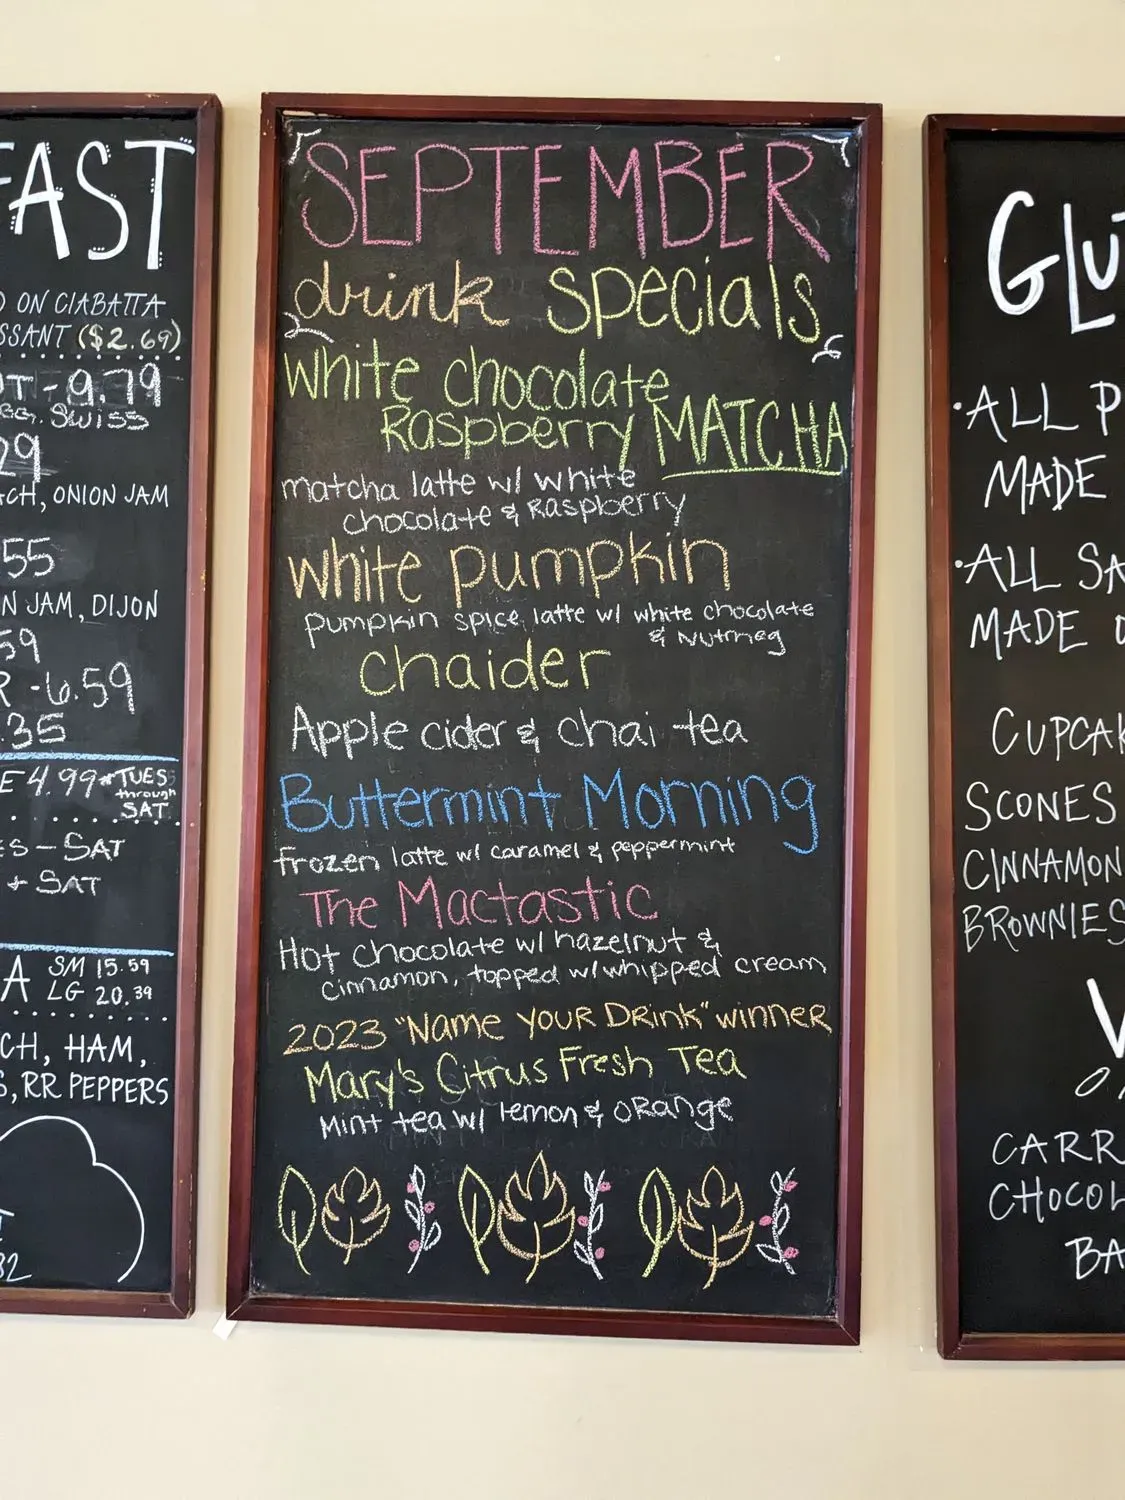 FAST
ON CIABATTA
SSANT ($2.69)
T - 9.79
EGG, SWISS
29
ACH, ONION JAM
55
N JAM, DIJON
59
R - 6.59
.35
E 4.99 * TUES
through
SAT
ES - SAT
+ SAT
A SM 15.59
LG 20.39
CH, HAM,
S, RR PEPPERS
32
SEPTEMBER
drink specials
white chocolate
Raspberry MATCHA
matcha latte w/ white
chocolate & Raspberry
white pumpkin
pumpkin spice latte w/ white chocolate
& Nutmeg
chaider
Apple cider & chai tea
Buttermint Morning
frozen latte w/ caramel & peppermint
The Mactastic
Hot chocolate w/ hazelnut &
cinnamon, topped w/ whipped cream
2023 "Name your Drink" winner
Mary's Citrus Fresh Tea
Mint tea w/ lemon & orange
GLU
• ALL P
MADE
• ALL SA
MADE
CUPCAK
SCONES
CINNAMON
BROWNIES
V
CARR
CHOCOL
BA